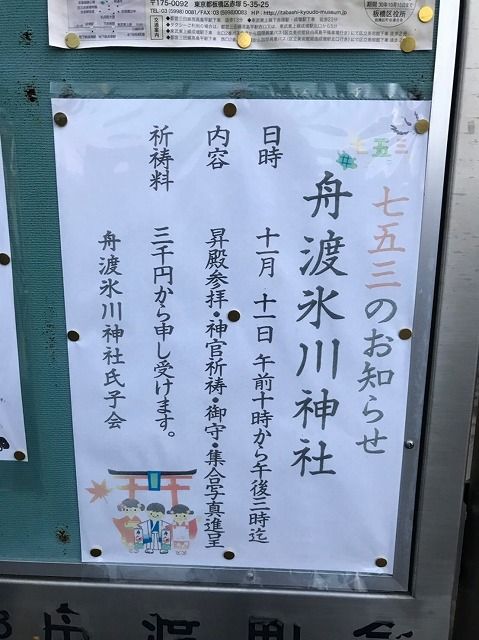 〒175-0092 東京都板橋区赤塚 5-35-25
板橋区役所
七五三
七五三のお知らせ
舟渡氷川神社
日時 十一月 十一日 午前十時から午後三時迄
内容 昇殿参拝・神官祈祷・御守・集合写真進呈
祈祷料 三千円から申し受けます。
舟渡氷川神社氏子会